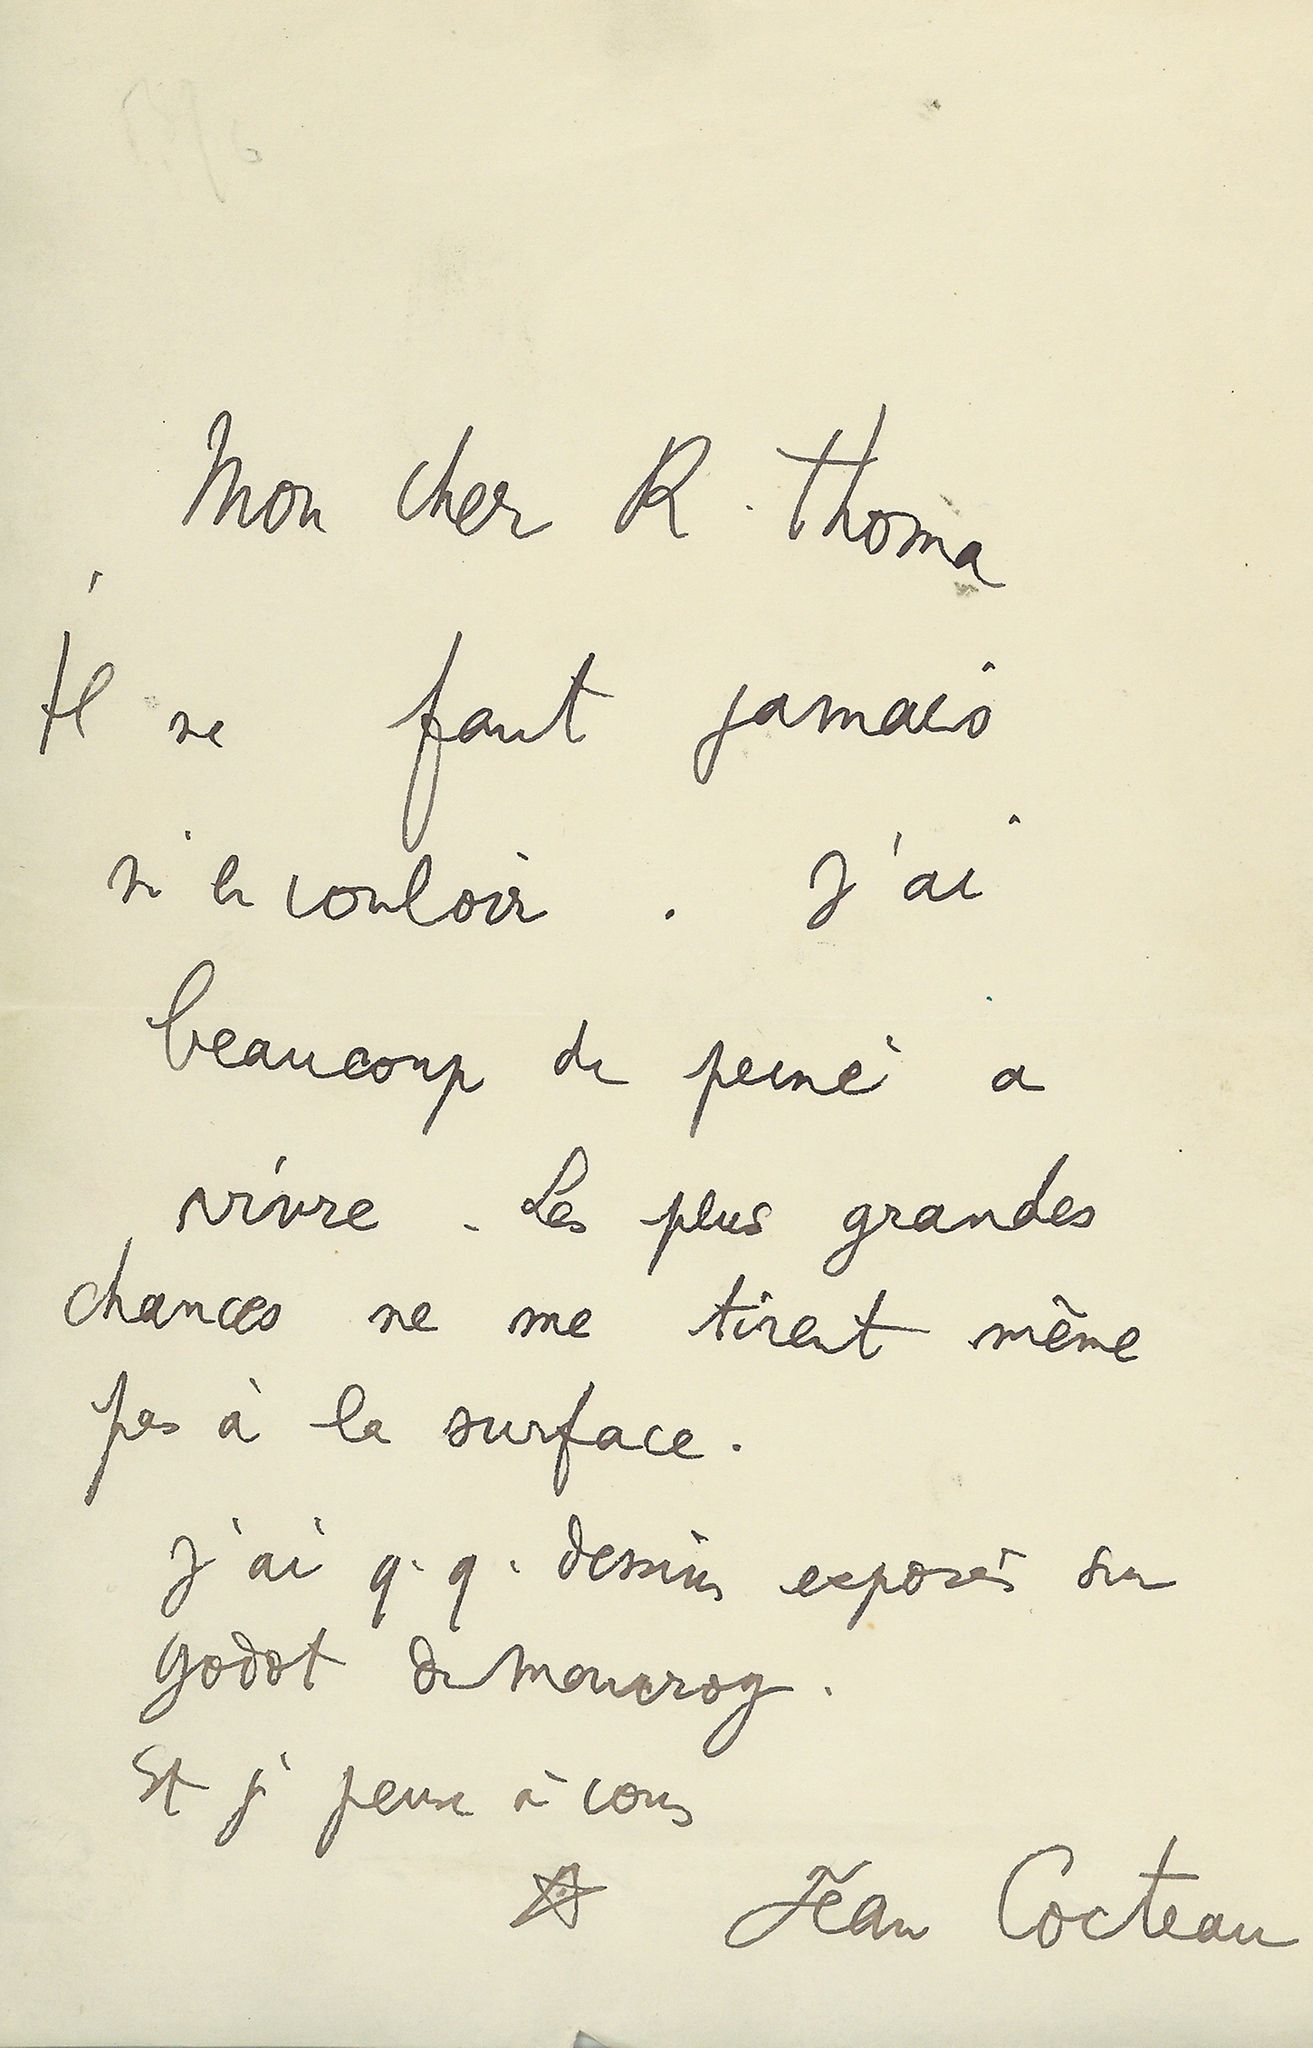 Mon cher R. Thoma
Il ne faut jamais
m'en vouloir. J'ai
beaucoup de peine a
vivre. Les plus grandes
chances ne me tirent même
pas à la surface.
J'ai q.q. dessins exposés sur
Godot de Mauroy.
Et j' pense à vous
Jean Cocteau